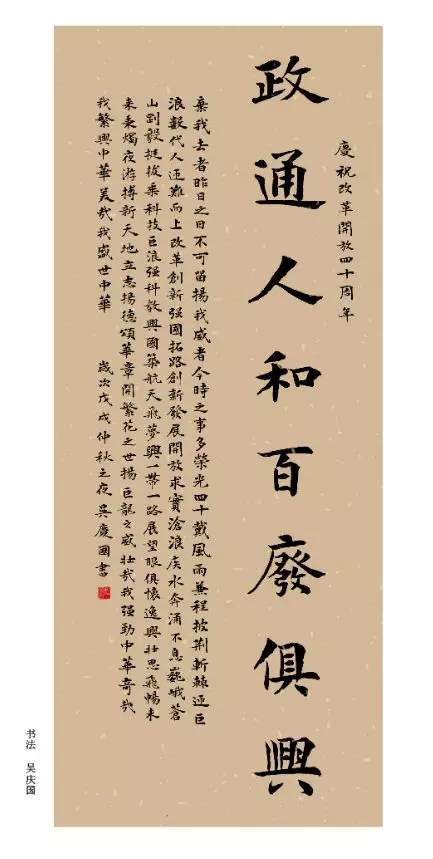 慶祝改革開放四十周年
政通人和百廢俱興
棄我去者昨日之日不可留揚我威者今時之事多榮光四十戴風雨兼程披荆斬棘逆巨
浪數代人迎難而上改革創新强國拓路創新發展開放求實滄浪矣水奔涌不息巍峨蒼
山剛毅挺拔乘科技巨浪强科教興國築航天飛夢興一帶一路展望眼俱懷逸興壯思飛暢未
来秉燭夜游搏新天地立志揚德頌華章開繁花之世揚巨龍之威壯哉我强勁中華奇哉
我繁興中華美哉我盛世中華
歲次戊戌仲秋之夜吳慶國書
书法 吴庆国